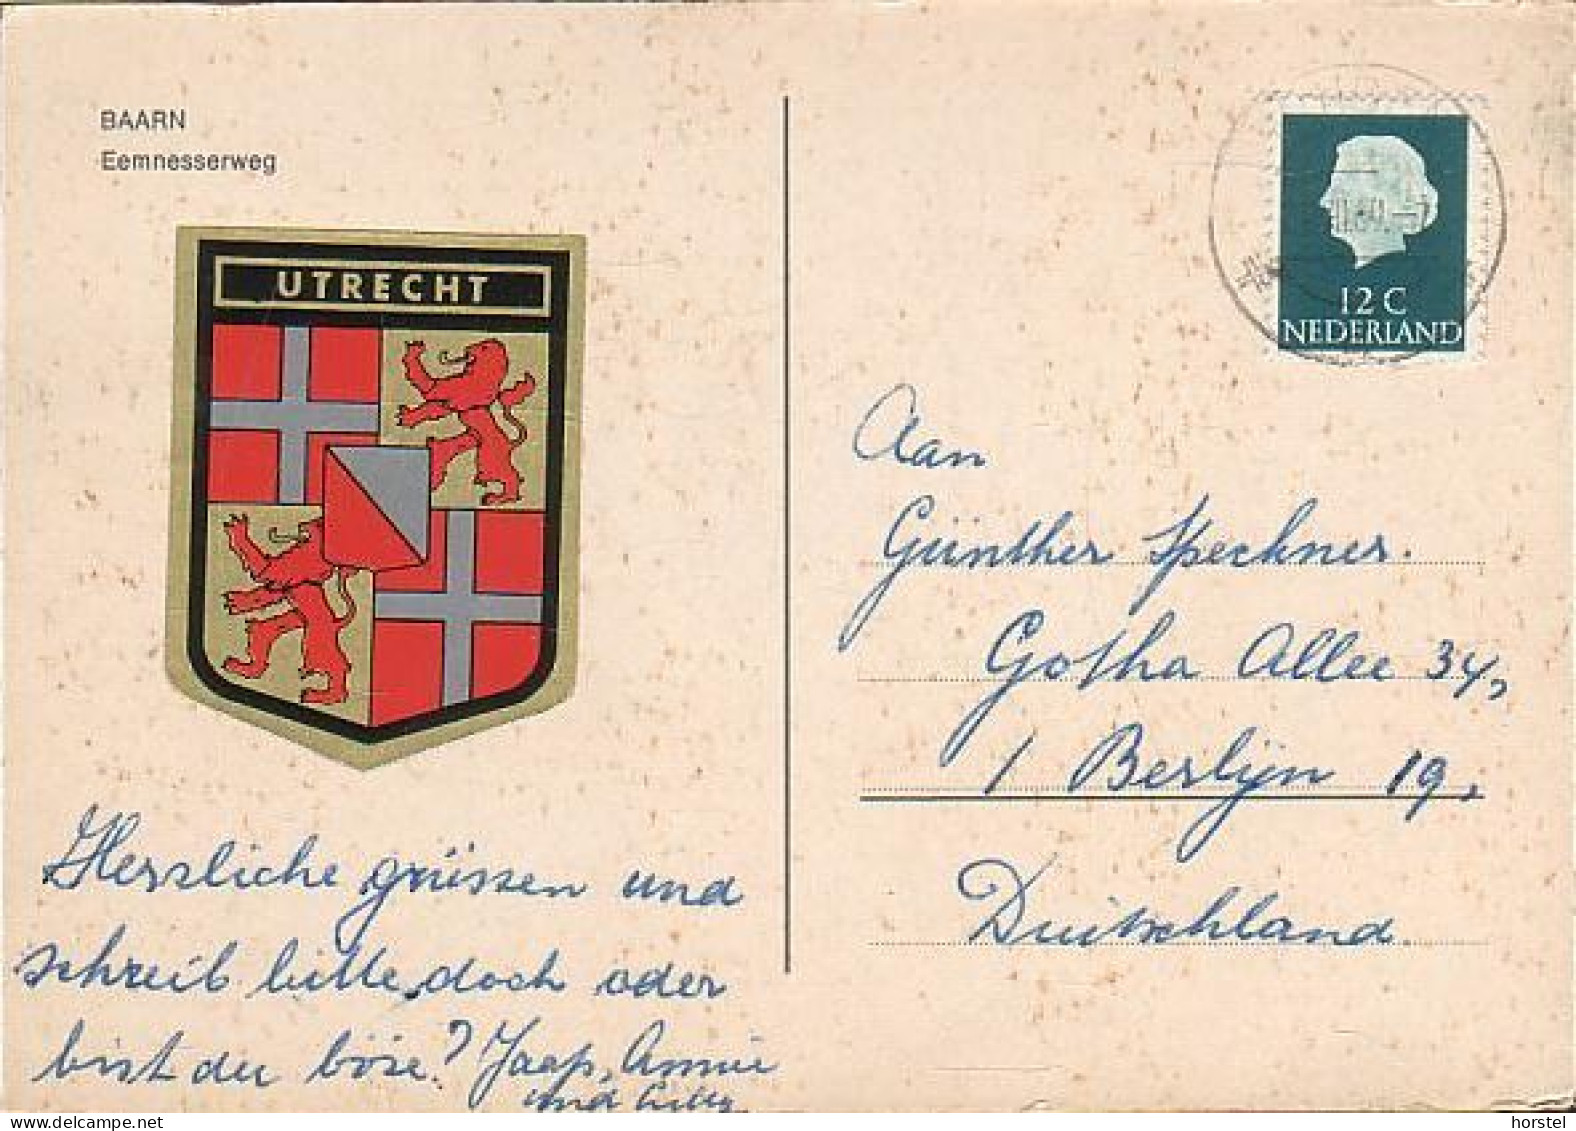 BAARN
Eemnesserweg
UTRECHT
12 C
NEDERLAND
Aan
Günther Speckner.
Gotha Allee 34,
1 Berlijn 19,
Duitschland.
Herzliche grüssen und
schreib bitte, doch oder
bist du böse? Jaap, Annie
und Lilly
horstel on delcampe.net